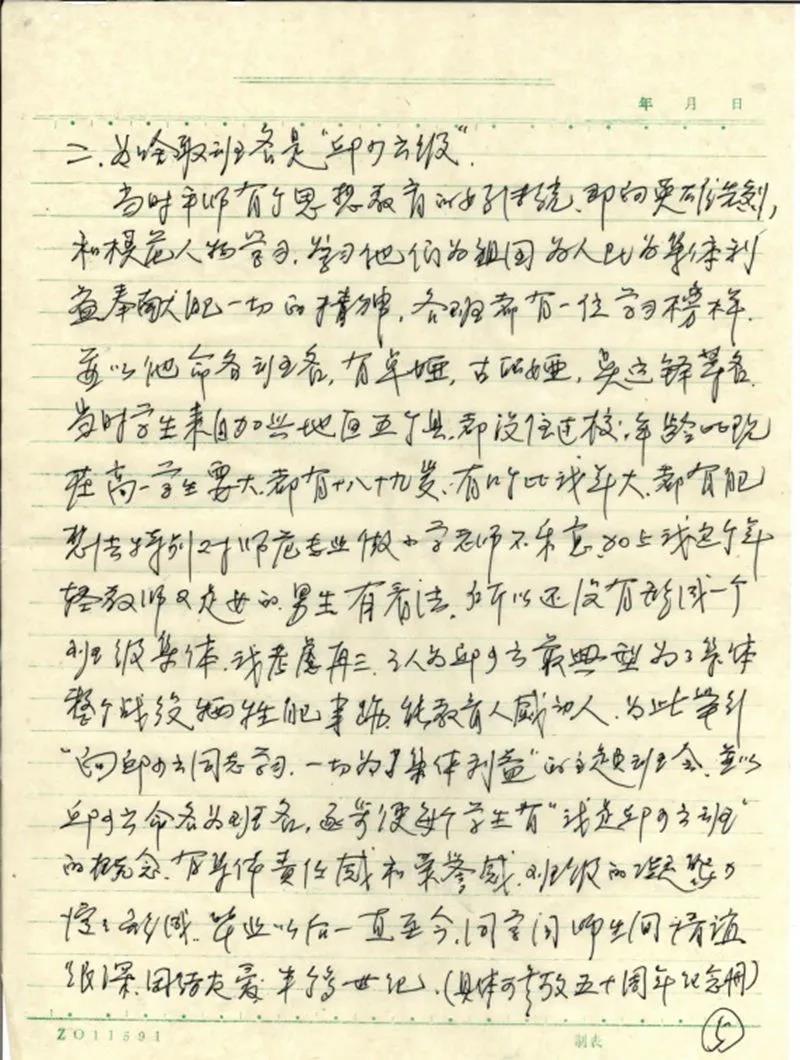 年 月 日
二、为啥取班名是“邱少云级”.
当时平师有个思想教育的好传统、即向英雄先烈,
和模范人物学习.学习他们为祖国为人民为集体利
益奉献出一切的精神,各班都有一位学习榜样.
并以他命名班名,有卓娅,古丽娅,吴运铎等名.
当时学生来自加兴地区五个县,都没住过校,年龄比现
在高一学生要大.都有十八十九岁、有的比我年大、都有
想法特别对师范专业做小学老师不乐意.加上我这个年
轻教师又是女的.男生有看法,所以还没有形成一个
班级集体.我考虑再三.认为邱少云最典型为了集体
整个战役牺牲的事迹.能教育人感动人.为此举行
“向邱少云同志学习.一切为了集体利益”的主题班会.并以
邱少云命名为班名,逐步使每个学生有“我是邱少云班”
的概念.有集体责任感和荣誉感.班级的凝聚力
慢慢形成.毕业以后一直至今,同学间师生间情谊
很深.团结友爱半个世纪.(具体可参改五十周年纪念册)
ZO11591
制表
5